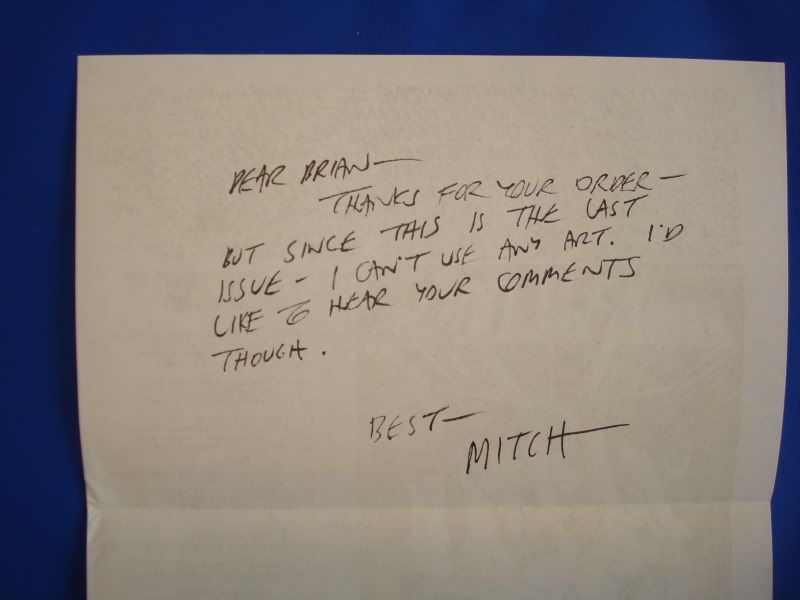 DEAR BRIAN—
THANKS FOR YOUR ORDER—
BUT SINCE THIS IS THE LAST
ISSUE - I CAN'T USE ANY ART. I'D
LIKE TO HEAR YOUR COMMENTS
THOUGH.
BEST—
MITCH